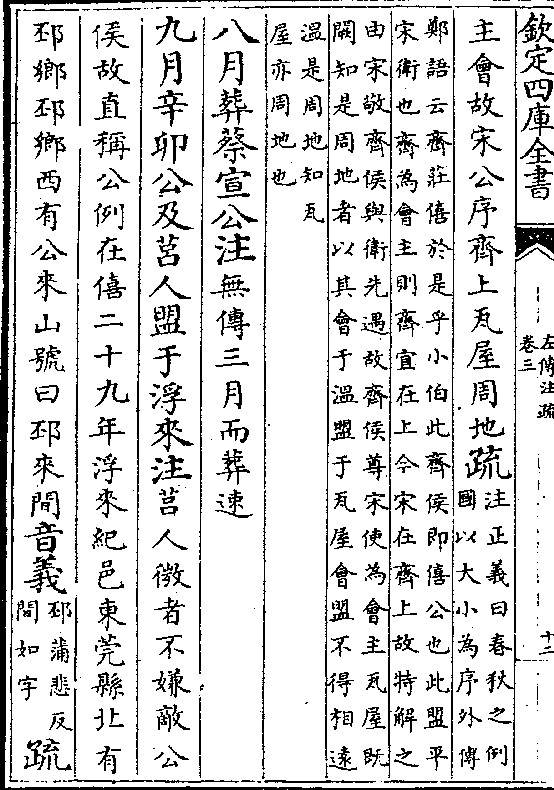 欽定四庫全書
左傳注疏
卷三
十二
主會故宋公序齊上瓦屋周地疏
注正義曰春秋之例
國以大小為序外傳
鄭語云齊莊僖於是乎小伯此齊侯即僖公也此盟平
宋衛也齊為會主則齊宜在上今宋在齊上故特解之
由宋敬齊侯與衛先遇故齊侯尊宋使為會主瓦屋既
闕知是周地者以其會于溫盟于瓦屋會盟不得相遠
溫是周地知瓦
屋亦周地也
八月葬蔡宣公注無傳三月而葬速
九月辛卯公及莒人盟于浮來注莒人微者不嫌敵公
侯故直稱公例在僖二十九年浮來紀邑東莞縣北有
邳鄉邳鄉西有公來山號曰邳來間音義
邳蒲悲反
間如字
疏